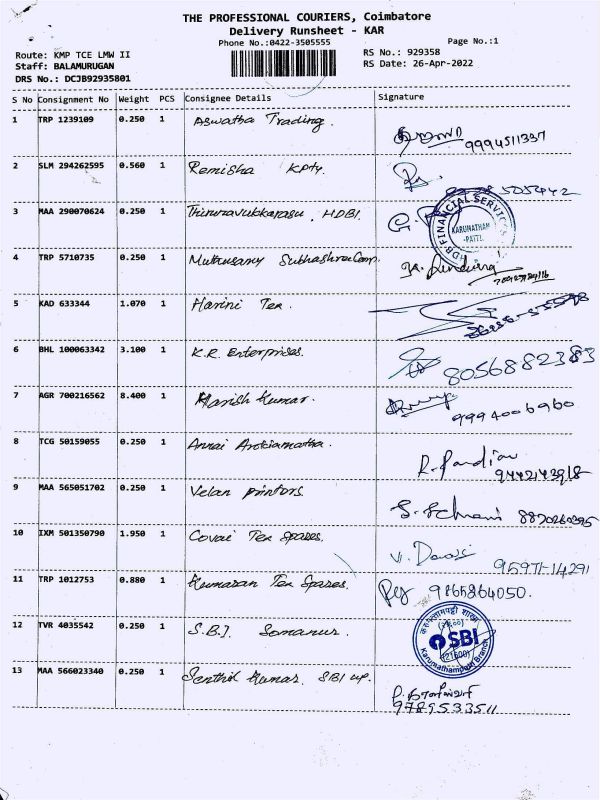 THE PROFESSIONAL COURIERS, Coimbatore
Delivery Runsheet - KAR
Phone No.:0422-3505555
Page No.:1
Route: KMP TCE LMW II
RS No.: 929358
Staff: BALAMURUGAN
RS Date: 26-Apr-2022
DRS No.: DCJB92935801
S No Consignment No Weight PCS Consignee Details Signature
1 TRP 1239109 0.250 1 Aswatha Trading. 9994511337
2 SLM 294262595 0.560 1 Remisha KPty.
3 MAA 290070624 0.250 1 Thirunavukkarasu, HDBI.
HDB FINANCIAL SERVICES
KARUNATHAM
PATTI
4 TRP 5710735 0.250 1 Muthusamy Subhashree Comp.
5 KAD 633344 1.070 1 Harini Tex.
6 BHL 100063342 3.100 1 K.R. Enterprises. 8056882383
7 AGR 700216562 8.400 1 Harish Kumar. 9994006960
8 TCG 50159055 0.250 1 Annai Arokiamatha. R. Pandian
9442143918
9 MAA 565051702 0.250 1 Velan printors 8870260395
10 IXM 501350790 1.950 1 Covai Tex Spares.
95971-14291
11 TRP 1012753 0.880 1 Kumaran Tex Spares. 9865864050.
12 TVR 4035542 0.250 1 S.B.I Somanur.
SBI
(21600)
Karumathampatti Branch
13 MAA 566023340 0.250 1 Senthil Kumar. SBI up.
9789533511